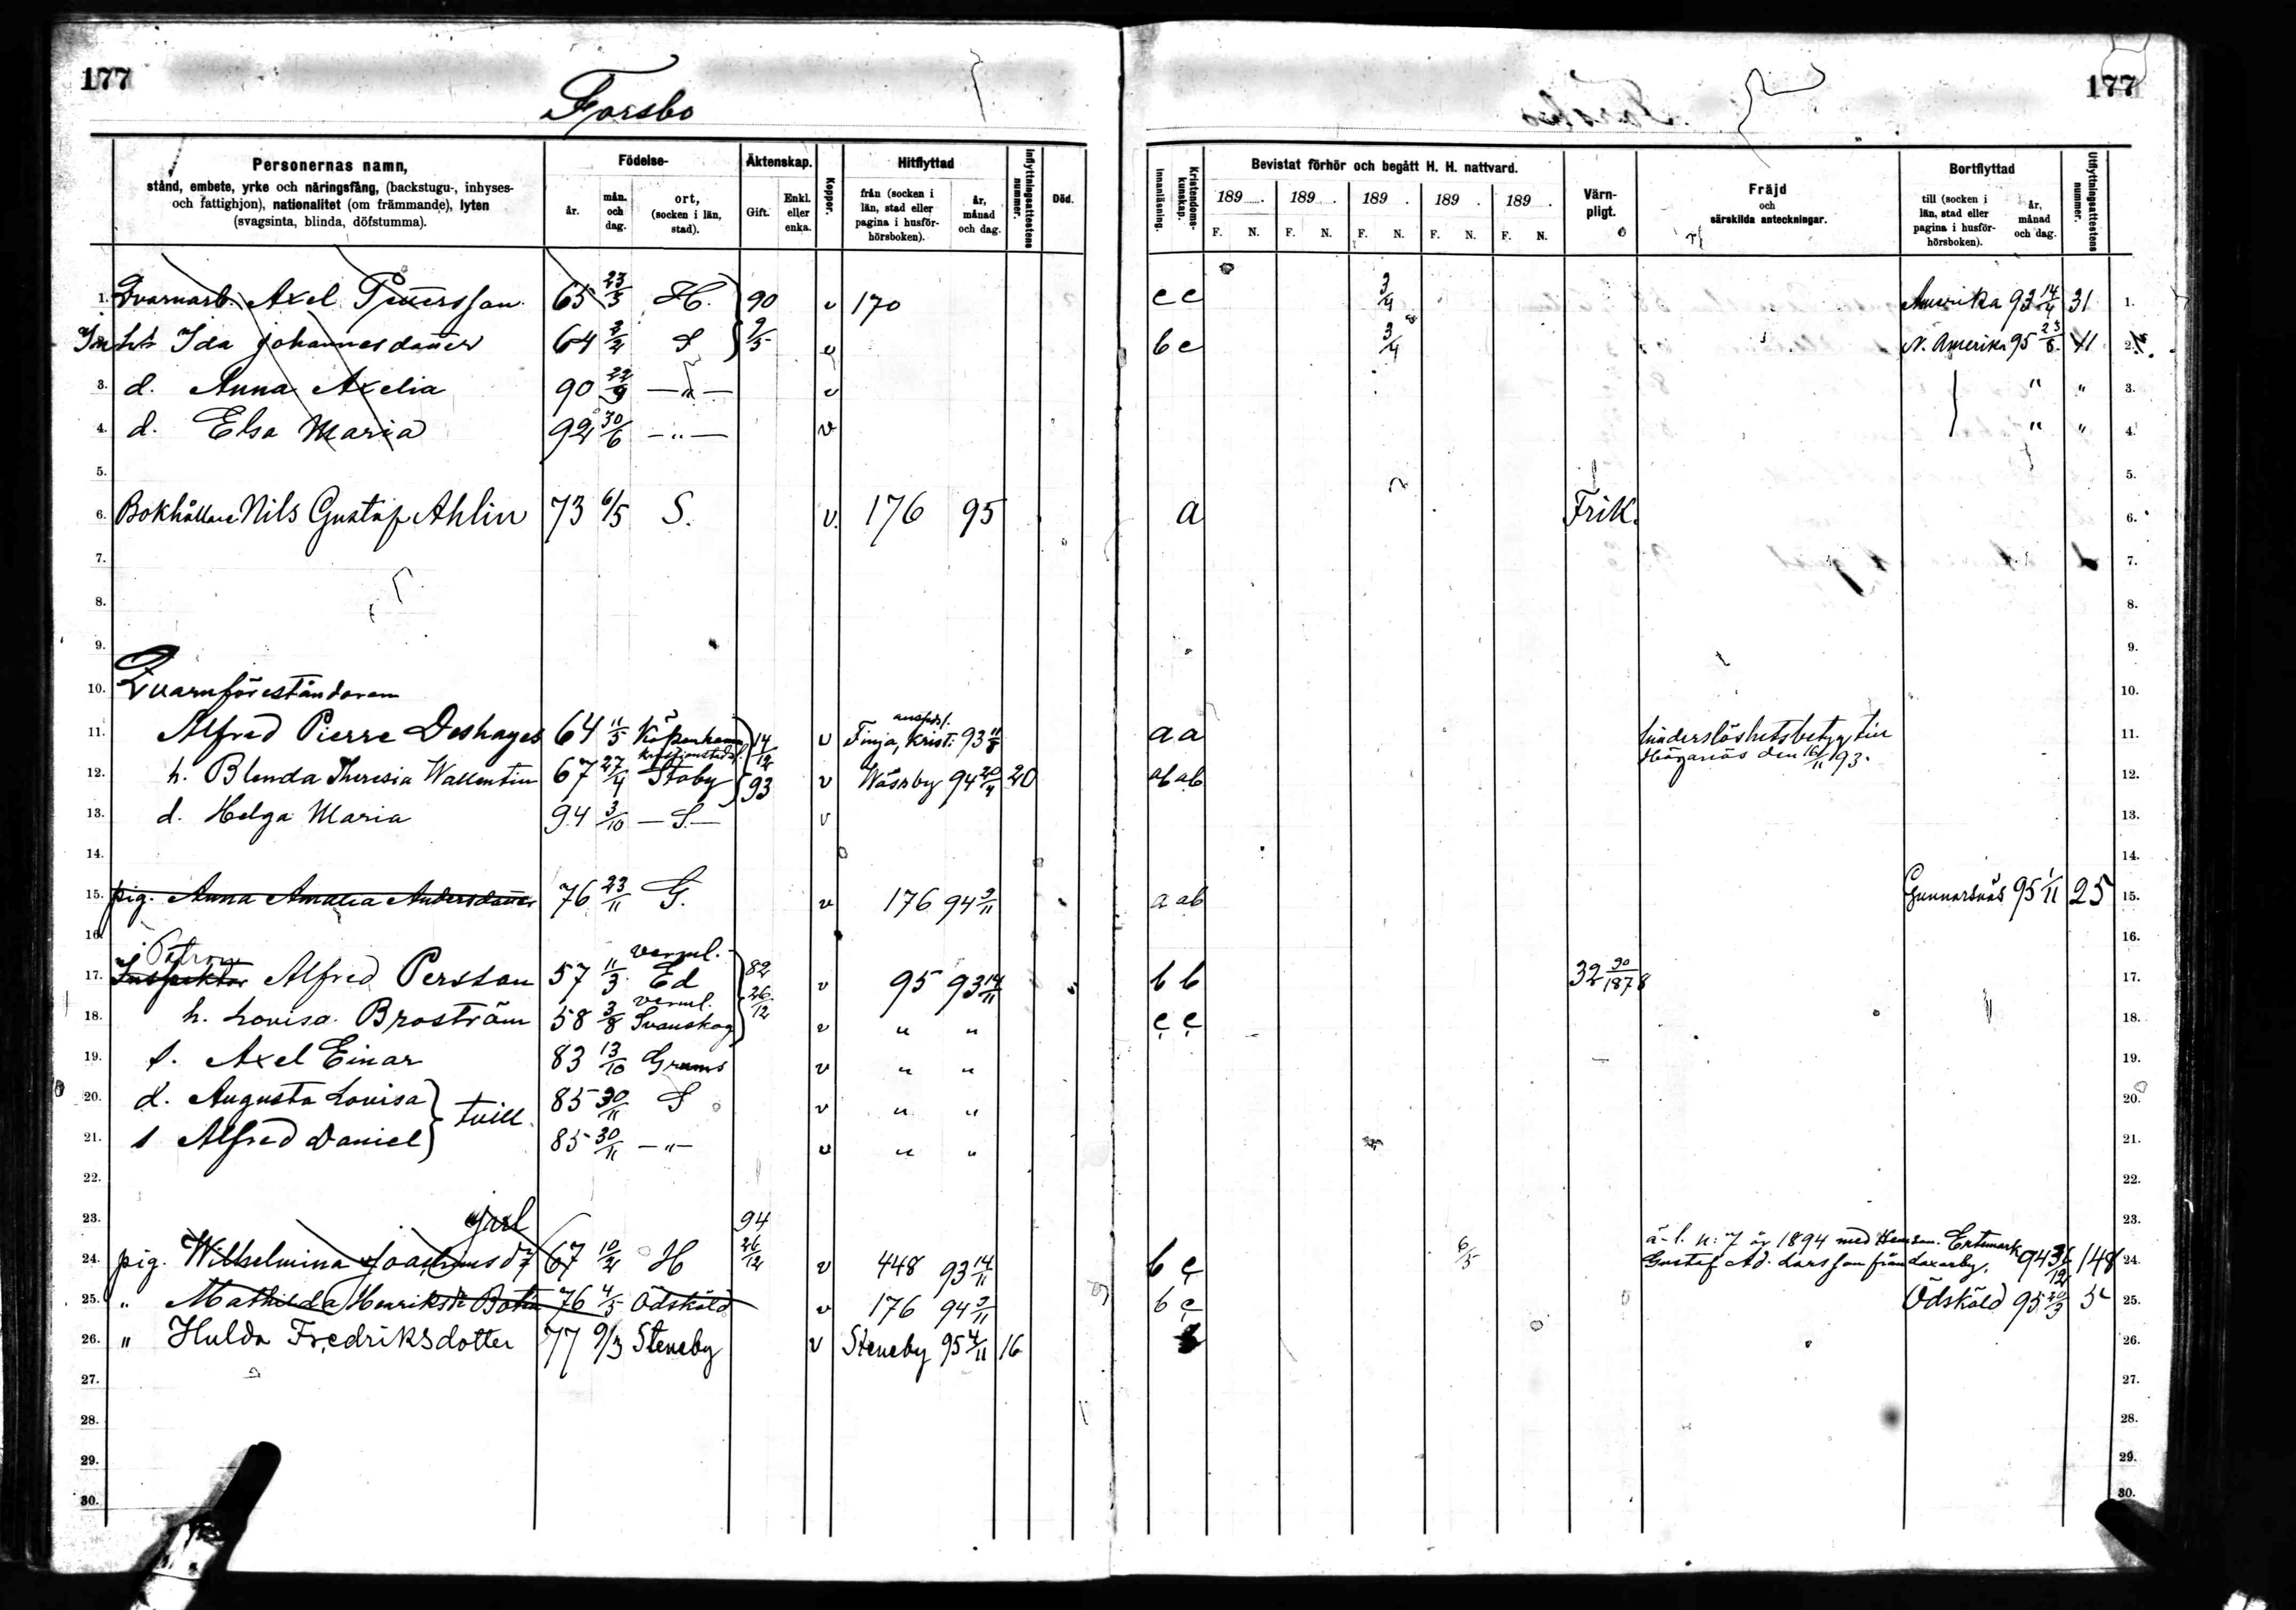 177
Forsbo
177
Personernas namn,
stånd, embete, yrke och näringsfång, (backstugu-, inhyses-
och fattighjon), nationalitet (om främmande), lyten
(svagsinta, blinda, döfstumma).
Födelse-
år.
mån.
och
dag.
ort,
(socken i län,
stad).
Äktenskap.
Gift.
Enkl.
eller
enka.
Koppor.
Hitflyttad
från (socken i
län, stad eller
pagina i husför-
hörsboken).
år,
månad
och dag.
Inflyttningsattestens
nummer.
Död.
Innanläsning.
Kristendoms-
kunskap.
Bevistat förhör och begått H. H. nattvard.
189 . 189 . 189 . 189 . 189 .
F. N. F. N. F. N. F. N. F. N.
Värn-
pligt.
Fräjd
och
särskilda anteckningar.
Bortflyttad
till (socken i
län, stad eller
pagina i husför-
hörsboken).
år,
månad
och dag.
Utflyttningsattestens
nummer.
1. Qvarnarb. Axel Pettersson 65 23/3 H. 90 v 170 c c 3/4 Amerika 93 14/4 31 1.
Ida Johannesdotter 64 S 9/5 v b c 3/4 N. Amerika 95 41 2.
3. d. Anna Axelia 90 22/9 — " — v " " 3.
4. d. Elsa Maria 92 30/6 — " — v " " 4.
5. 5.
6. Bokhållare Nils Gustaf Ahlin 73 6/5 S. v. 176 95 a Frik. 6.
7. 7.
8. 8.
9. 9.
10. Quarnföreståndaren 10.
11. Alfred Pierre Deshayes 64 11/5 Köpenhamn 14/12 v Finja, Krist: 93 11/8 a a hinderslöshetsbetyg 11.
Höganäs den 16/11 93.
12. h. Blenda Theresia Wallentin 67 27/4 Kristianstads l. Stoby 93 v Wäsby 94 20/4 20 ab ab 12.
13. d. Helga Maria 94 3/10 — S. — v 13.
14. 14.
15. pig. Anna Amalia Andersdotter 76 23/11 G. v 176 94 9/11 a ab Gunnarsnäs 95 1/11 25 15.
16. Patron verml. 16.
17. Inspektor Alfred Persson 57 11/3 Ed 82 v 95 93 14/11 b b 32 30/1878 17.
18. h. Lovisa Broström 58 3/8 verml. Svanskog 26/12 v " " c c 18.
19. s. Axel Einar 83 13/10 Grums v " " 19.
20. d. Augusta Lovisa } tvill. 85 30/11 S v " " 20.
21. s Alfred Daniel } 85 30/11 — " — v " " 21.
22. 22.
23. gift 94 23.
24. pig. Wilhelmina Joachimsd 67 H 26/12 v 448 93 14/11 b c 6/5 ä-l. n: 7 år 1894 med Ertemark 94 148 24.
Gustaf Ad. Larsson från Laxarby.
25. " Mathilda Henriksdr 76 4/5 Ödsköld v 176 94 9/11 b c Ödsköld 95 5 25.
26. " Hulda Fredriksdotter 77 9/3 Steneby v Steneby 95 4/11 16 26.
27. 27.
28. 28.
29. 29.
30. 30.